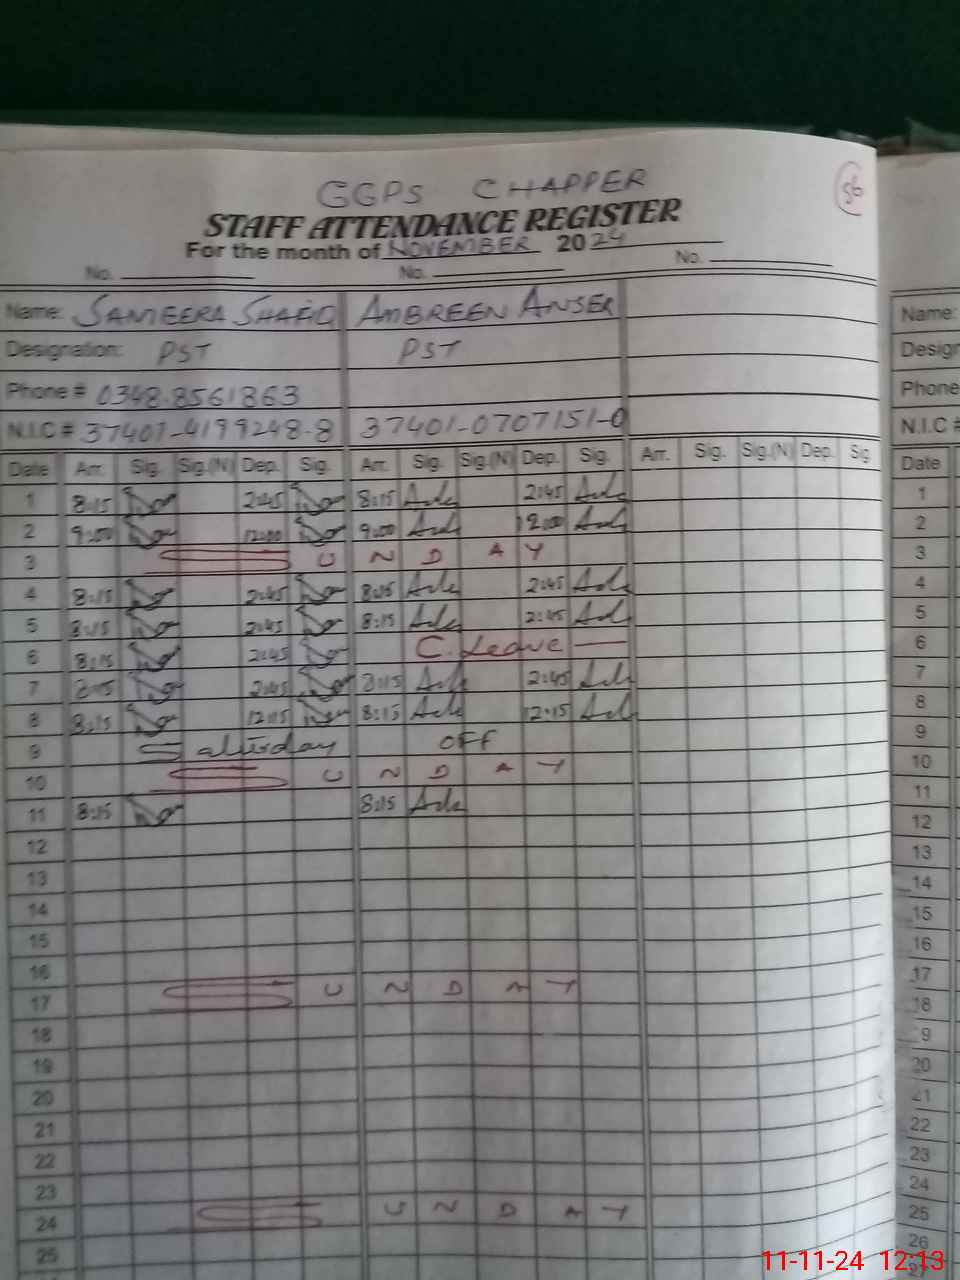 GGPS CHAPPER
56
STAFF ATTENDANCE REGISTER
For the month of NOVEMBER 2024
No. No. No.
Name: SAMEERA SHAFIQ AMBREEN ANSER Name:
Designation: PST PST Design
Phone # 0348-8561863 Phone
N.I.C # 37401-4199248-8 37401-0707151-0 N.I.C #
Date Arr. Sig. Sig.(N) Dep. Sig. Arr. Sig. Sig.(N) Dep. Sig. Arr. Sig. Sig.(N) Dep. Sig Date
1 8:15 2:45 8:15 2:45 1
2 9:00 12:00 9:00 12:00 2
3 SUNDAY 3
4 8:15 2:45 8:15 2:45 4
5 8:15 2:45 8:15 2:45 5
6 8:15 2:45 C. Leave 6
7 8:15 2:45 8:15 2:45 7
8 8:15 12:15 8:15 12:15 8
9 Saturday OFF 9
10 SUNDAY 10
11 8:15 8:15 11
12 12
13 13
14 14
15 15
16 16
17 SUNDAY 17
18 18
19 19
20 20
21 21
22 22
23 23
24 SUNDAY 24
25 25
26
11-11-24 12:13